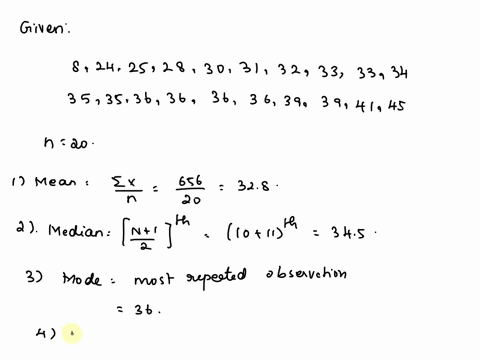 Given:
8, 24, 25, 28, 30, 31, 32, 33, 33, 34
35, 35, 36, 36, 36, 36, 39, 39, 41, 45
n = 20.
1) Mean = Σx/n = 656/20 = 32.8.
2). Median = [N+1/2]^th = (10+11)^th = 34.5.
3) Mode = most repeated observation
= 36.
4)